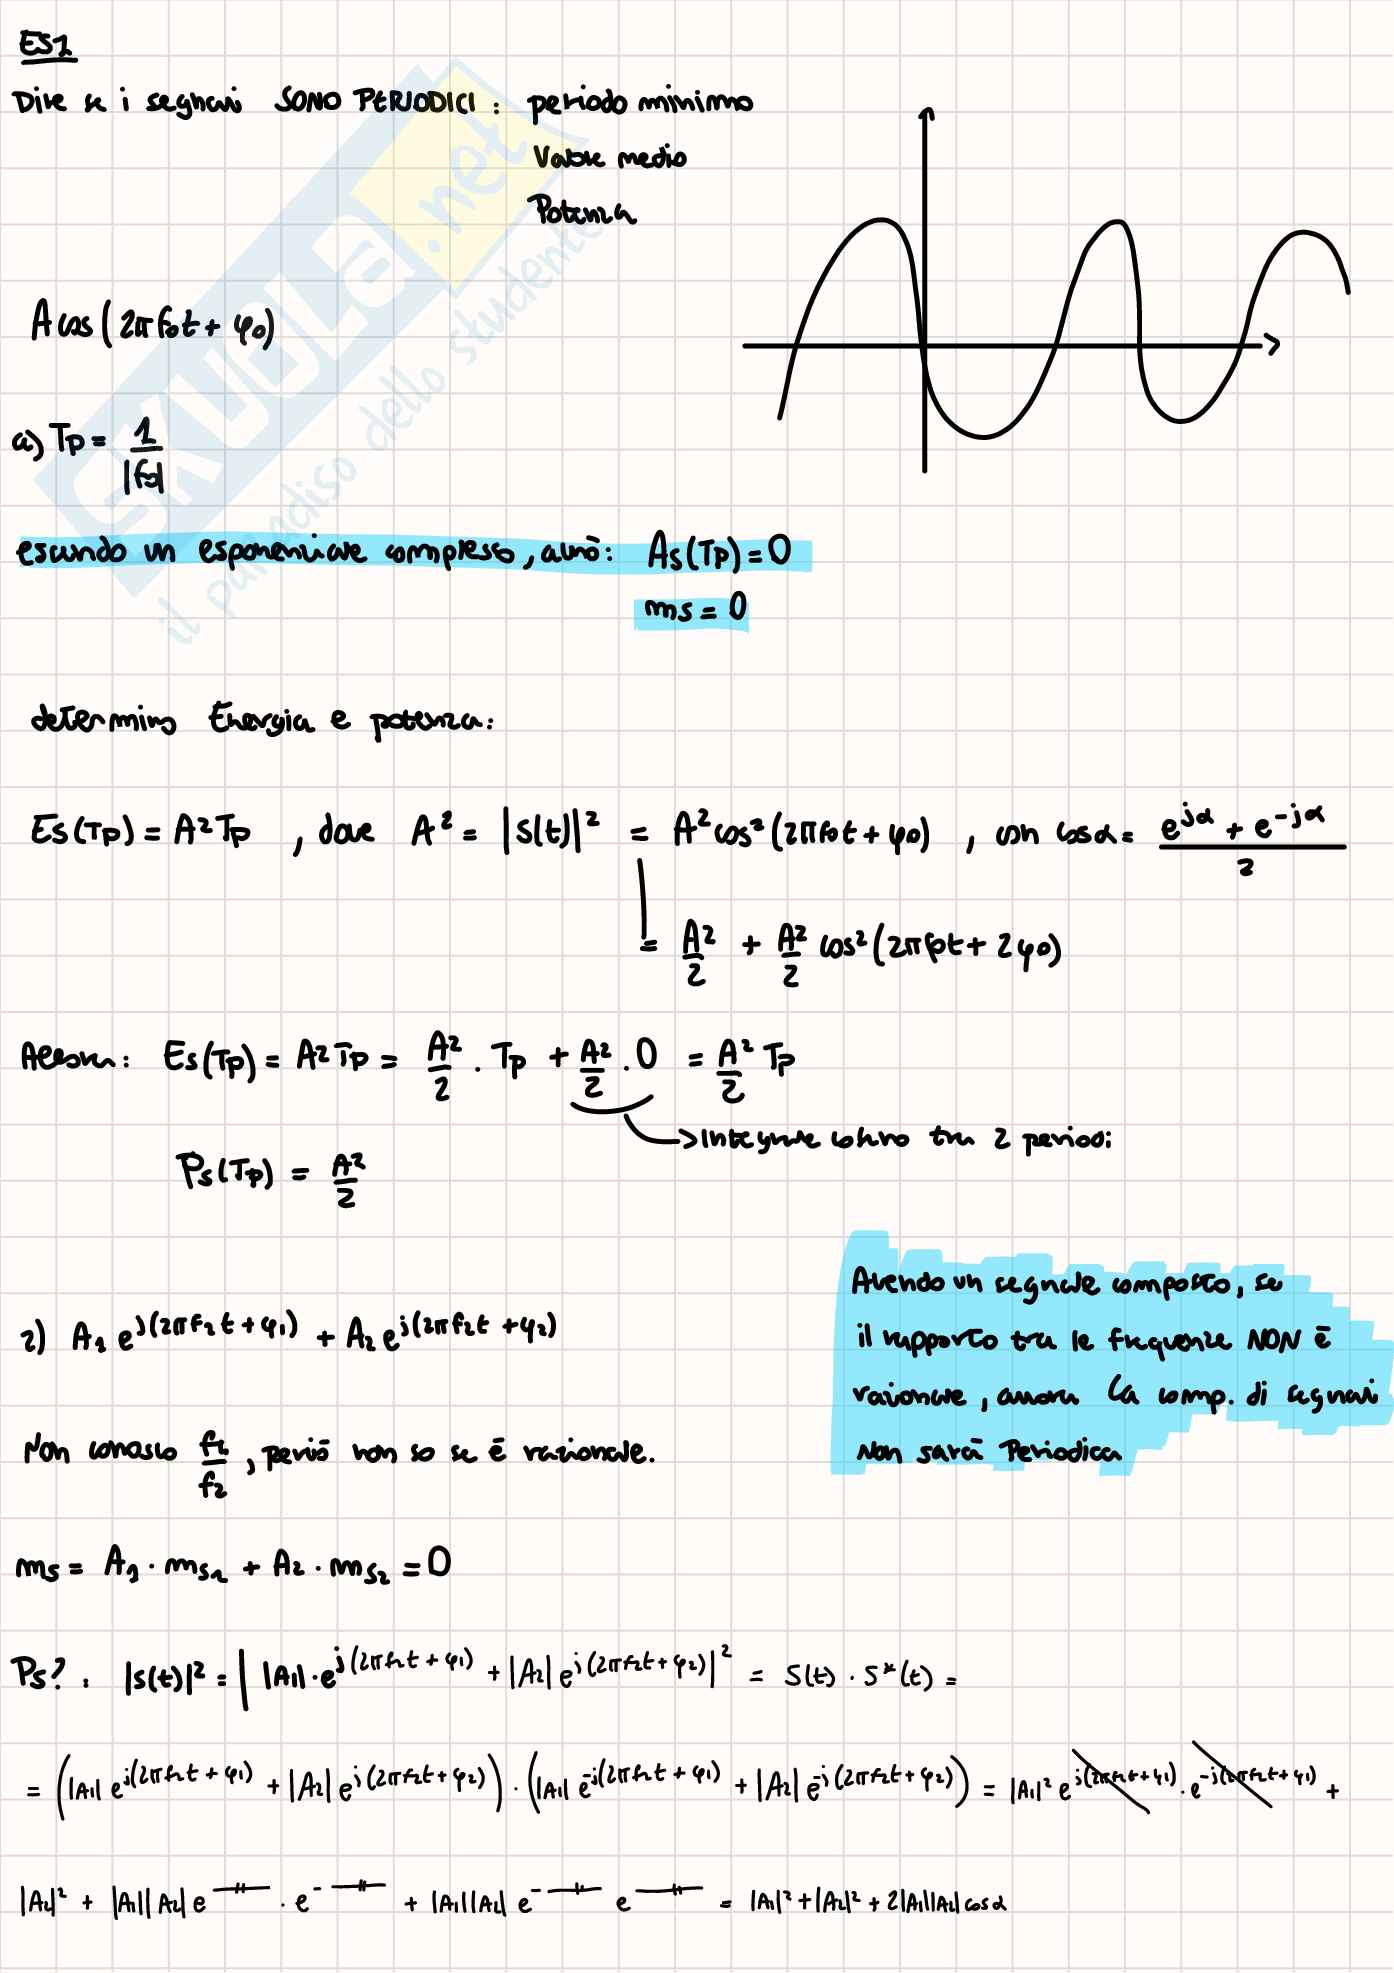 ES1
Dire se i segnali SONO PERIODICI: periodo minimo
Valore medio
Potenza
A cos(2πf₀t + φ₀)
a) Tp = 1/|f₀|
essendo un esponenziale complesso, avrò: As(Tp) = 0
ms = 0
determino Energia e potenza:
Es(Tp) = A² Tp , dove A² = |S(t)|² = A² cos²(2πf₀t + φ₀) , con cos α = (e^{jα} + e^{-jα})/2
= A²/2 + A²/2 cos²(2πf₀t + 2φ₀)
Allora: Es(Tp) = A² Tp = A²/2 · Tp + A²/2 · 0 = A²/2 Tp
→ Integrale coseno tra 2 periodi
Ps(Tp) = A²/2
Avendo un segnale composto, se
il rapporto tra le frequenze NON è
razionale, allora la comp. di segnali
Non sarà Periodica
2) A₁ e^{j(2πf₁t + φ₁)} + A₂ e^{j(2πf₂t + φ₂)}
Non conosco f₁/f₂, perciò non so se è razionale.
ms = A₁ · ms₁ + A₂ · ms₂ = 0
Ps? : |S(t)|² = | |A₁| · e^{j(2πf₁t + φ₁)} + |A₂| e^{j(2πf₂t + φ₂)} |² = S(t) · S*(t) =
= (|A₁| e^{j(2πf₁t + φ₁)} + |A₂| e^{j(2πf₂t + φ₂)}) · (|A₁| e^{-j(2πf₁t + φ₁)} + |A₂| e^{-j(2πf₂t + φ₂)}) = |A₁|² e^{j(2πf₁t + φ₁)} · e^{-j(2πf₁t + φ₁)} +
|A₂|² + |A₁||A₂| e^{—//—} · e^{- —//—} + |A₁||A₂| e^{- —//—} e^{—//—} = |A₁|² + |A₂|² + 2|A₁||A₂| cos α
SKUOLA.net
il paradiso dello studente